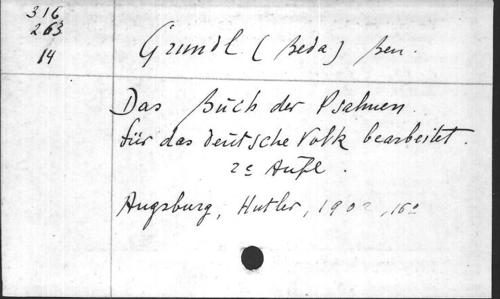 316
263
14
Grundl (Beda) Ben.
Das Buch der Psalmen
für das deutsche Volk bearbeitet.
2e Aufl.
Augsburg, Huttler, 1902, 16o